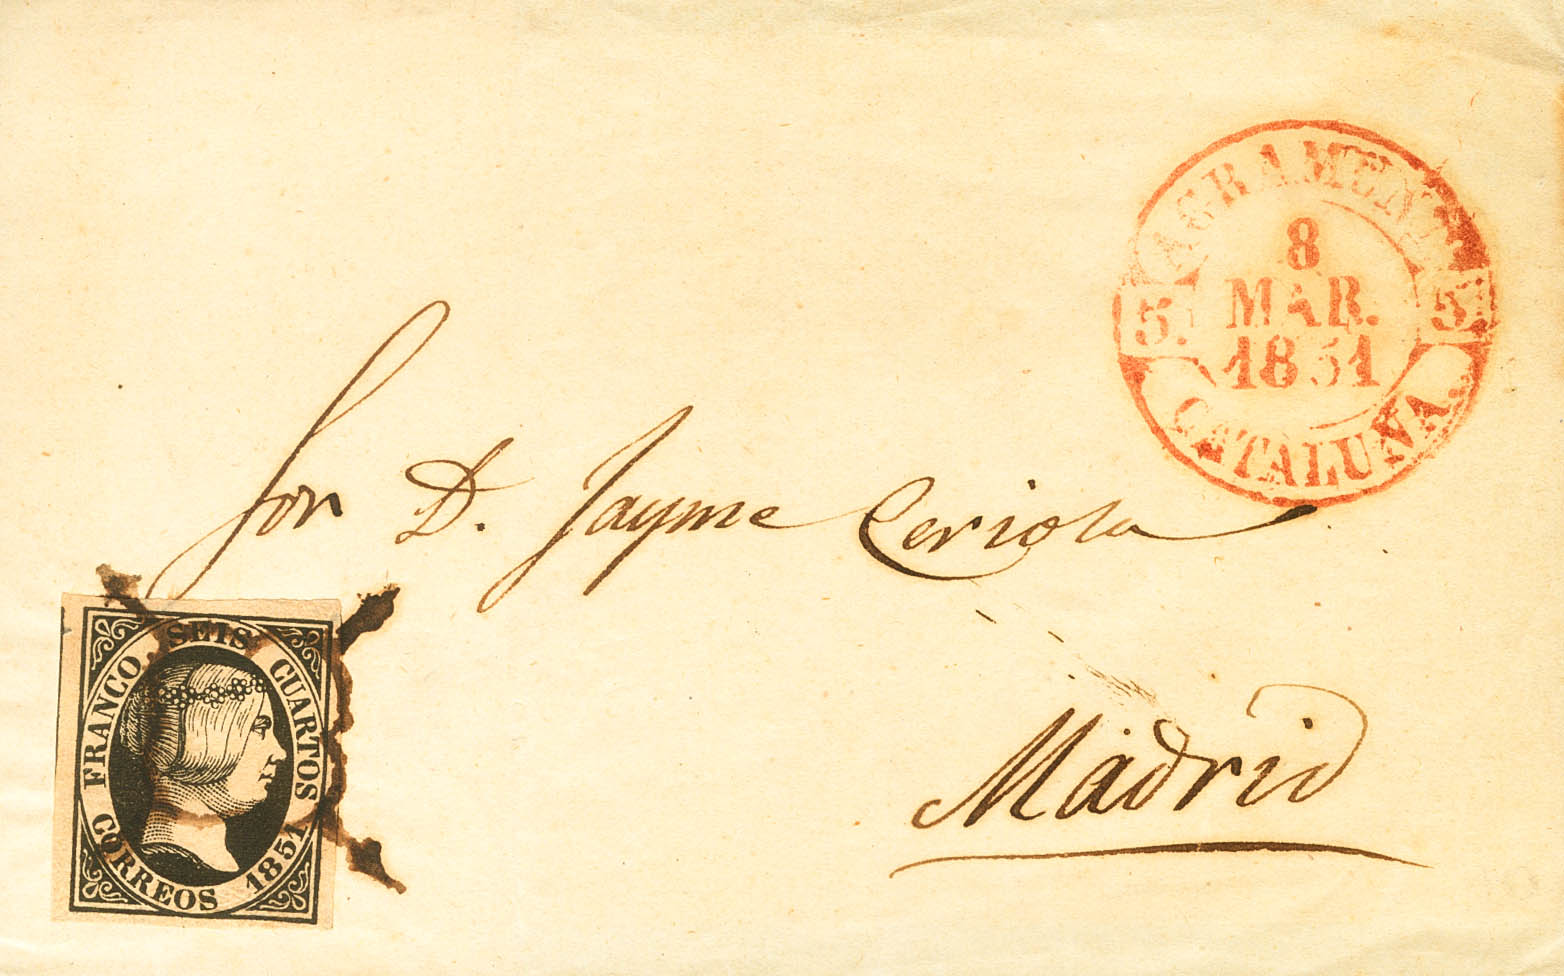 SAGRAMENTO
8
MAR.
1851
5. 5.
CATALUÑA.
Sor D. Jayme Ceriola
Madrid
FRANCO. SEIS CUARTOS
CORREOS 1851